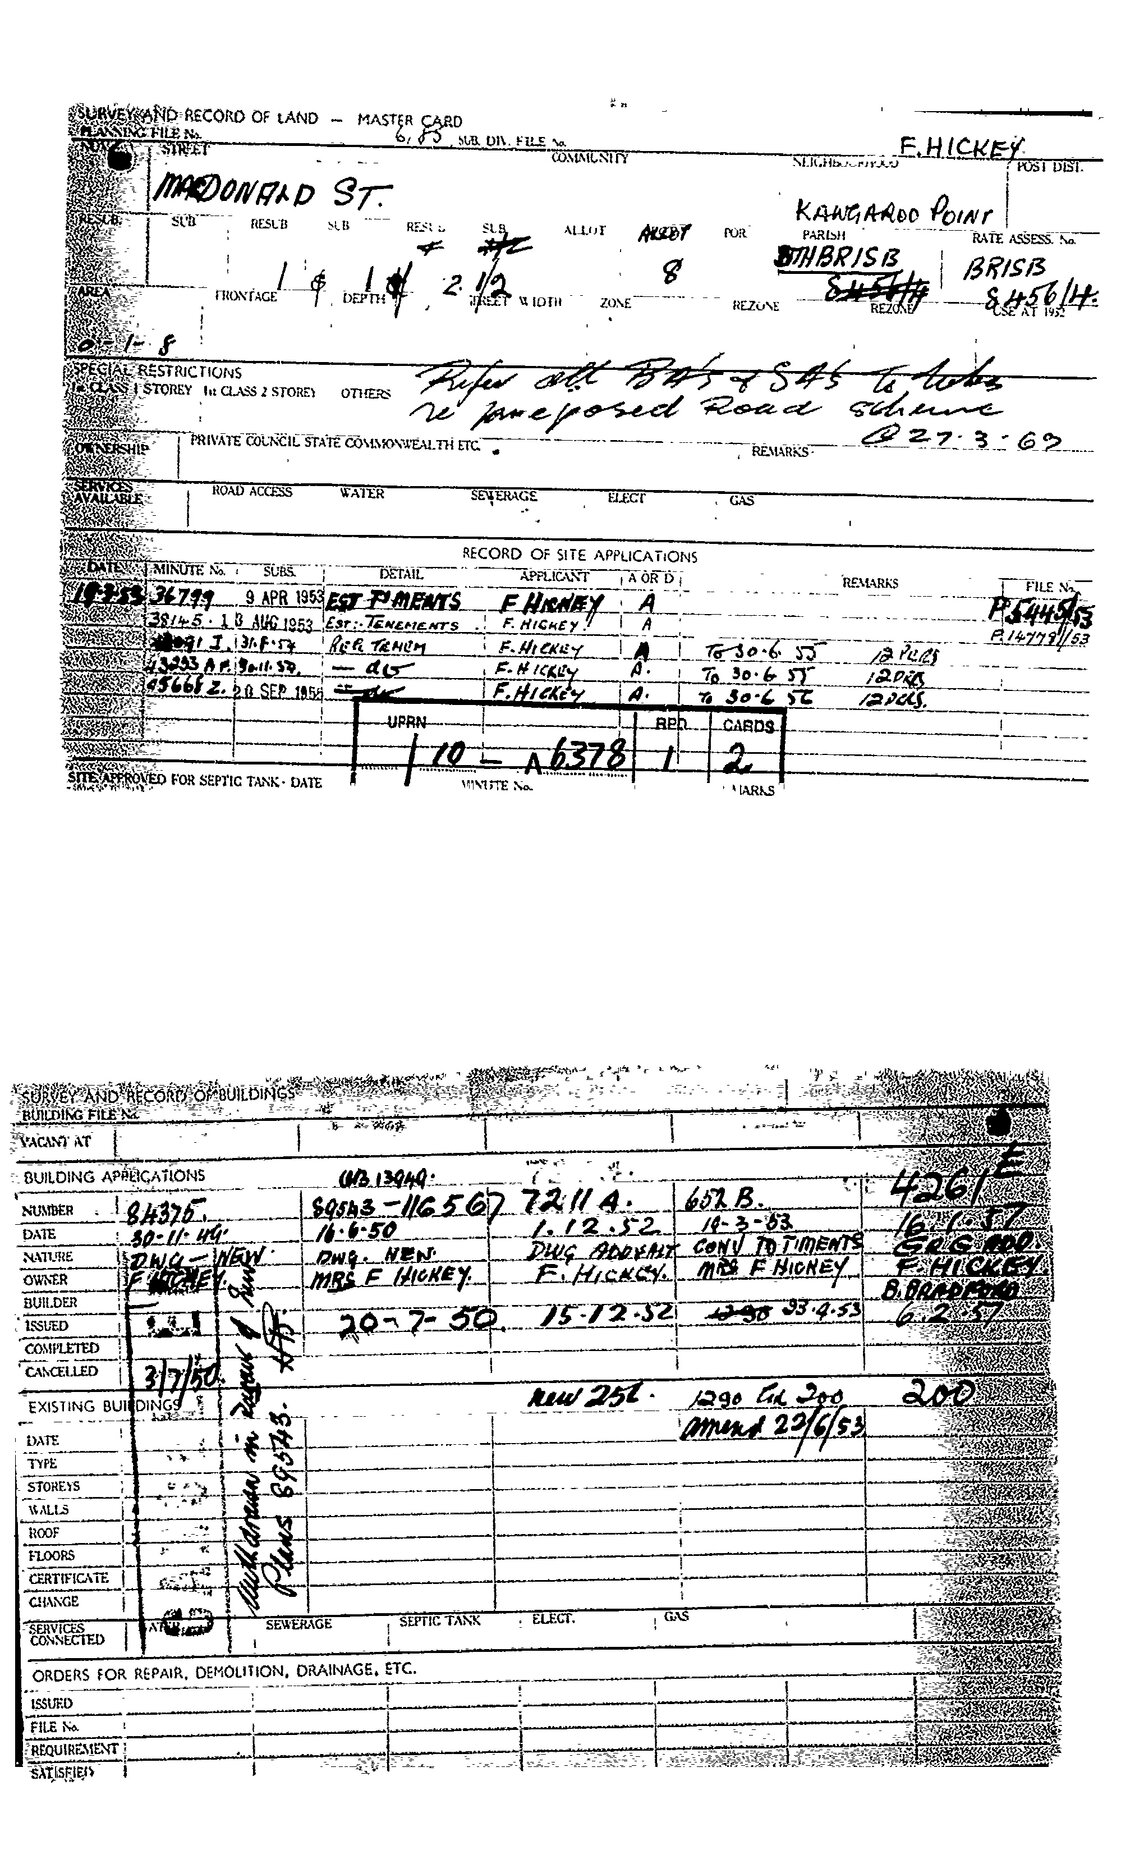 SURVEY AND RECORD OF LAND — MASTER CARD
PLANNING FILE No. 6/85 SUB. DIV. FILE No. F. HICKEY
STREET COMMUNITY NEIGHBOURHOOD POST DIST.
MACDONALD ST. KANGAROO POINT
RESUB. SUB RESUB SUB RESUB SUB ALLOT ALLOT POR PARISH RATE ASSESS. No.
8 STHBRISB BRISB
8456/4 8456/4.
AREA FRONTAGE DEPTH STREET WIDTH ZONE REZONE REZONE USE AT 1952
0-1-8
SPECIAL RESTRICTIONS
1st CLASS 1 STOREY 1st CLASS 2 STOREY OTHERS Refer all BA's & SA's to
re proposed Road scheme
27.3.63
OWNERSHIP PRIVATE COUNCIL STATE COMMONWEALTH ETC. REMARKS
SERVICES AVAILABLE ROAD ACCESS WATER SEWERAGE ELECT GAS
RECORD OF SITE APPLICATIONS
DATE MINUTE No. SUBS. DETAIL APPLICANT A OR D REMARKS FILE No.
36799 9 APR 1953 EST T'MENTS F HICKEY A P.5445/53
38145 18 AUG 1953 EST. TENEMENTS F. HICKEY. A P.14778/53
31.8.54 F. HICKEY A To 30.6.55 12 PERS
30.11.54 — do F. HICKEY A. To 30.6.55 12 PERS
45668 Z. 20 SEP 1955 — do F. HICKEY A. To 30.6.56 12 PERS.
UPRN RPD CARDS
10 — A 6378 1 2
SITE APPROVED FOR SEPTIC TANK - DATE MINUTE No.
SURVEY AND RECORD OF BUILDINGS
BUILDING FILE No.
VACANT AT
BUILDING APPLICATIONS
NUMBER 84375. 89543-116567 7211 A. 652 B. 4261/E
DATE 30-11-49. 16.6.50 1.12.52 19-3-53 16.1.57
NATURE DWG — NEW. DWG. NEW. DWG ADD & ALT CONV TO T'MENTS GRG ADD
OWNER F HICKEY. MRS F HICKEY. F. HICKEY. MRS F HICKEY F. HICKEY
BUILDER B. BRADFORD
ISSUED 20-7-50. 15.12.52 23.4.53 6.2.57
COMPLETED
CANCELLED 3/7/50.
Withdrawn in favour of
Plans 89543.
EXISTING BUILDINGS new 251. 200
amend 22/6/53
DATE
TYPE
STOREYS
WALLS
ROOF
FLOORS
CERTIFICATE
CHANGE
SERVICES CONNECTED SEWERAGE SEPTIC TANK ELECT. GAS
ORDERS FOR REPAIR, DEMOLITION, DRAINAGE, ETC.
ISSUED
FILE No.
REQUIREMENT
SATISFIED